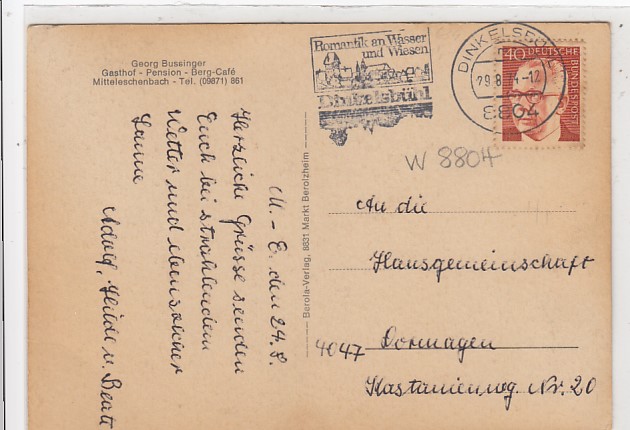 Georg Bussinger
Gasthof - Pension - Berg-Café
Mitteleschenbach - Tel. (09871) 861
Romantik an Wasser
und Wiesen
Dinkelsbühl
DINKELSBÜHL
29.8.74-12
8804
40 DEUTSCHE
BUNDESPOST
W 8804
M.-E. den 29.8.
Herzliche Grüsse senden
Euch bei strahlendem
Wetter und ebensolcher
Laune
Adolf, Hilde u. Beate
Berola-Verlag, 8831 Markt Berolzheim
An die
Hausgemeinschaft
4047 Dormagen
Kastanienweg Nr. 20